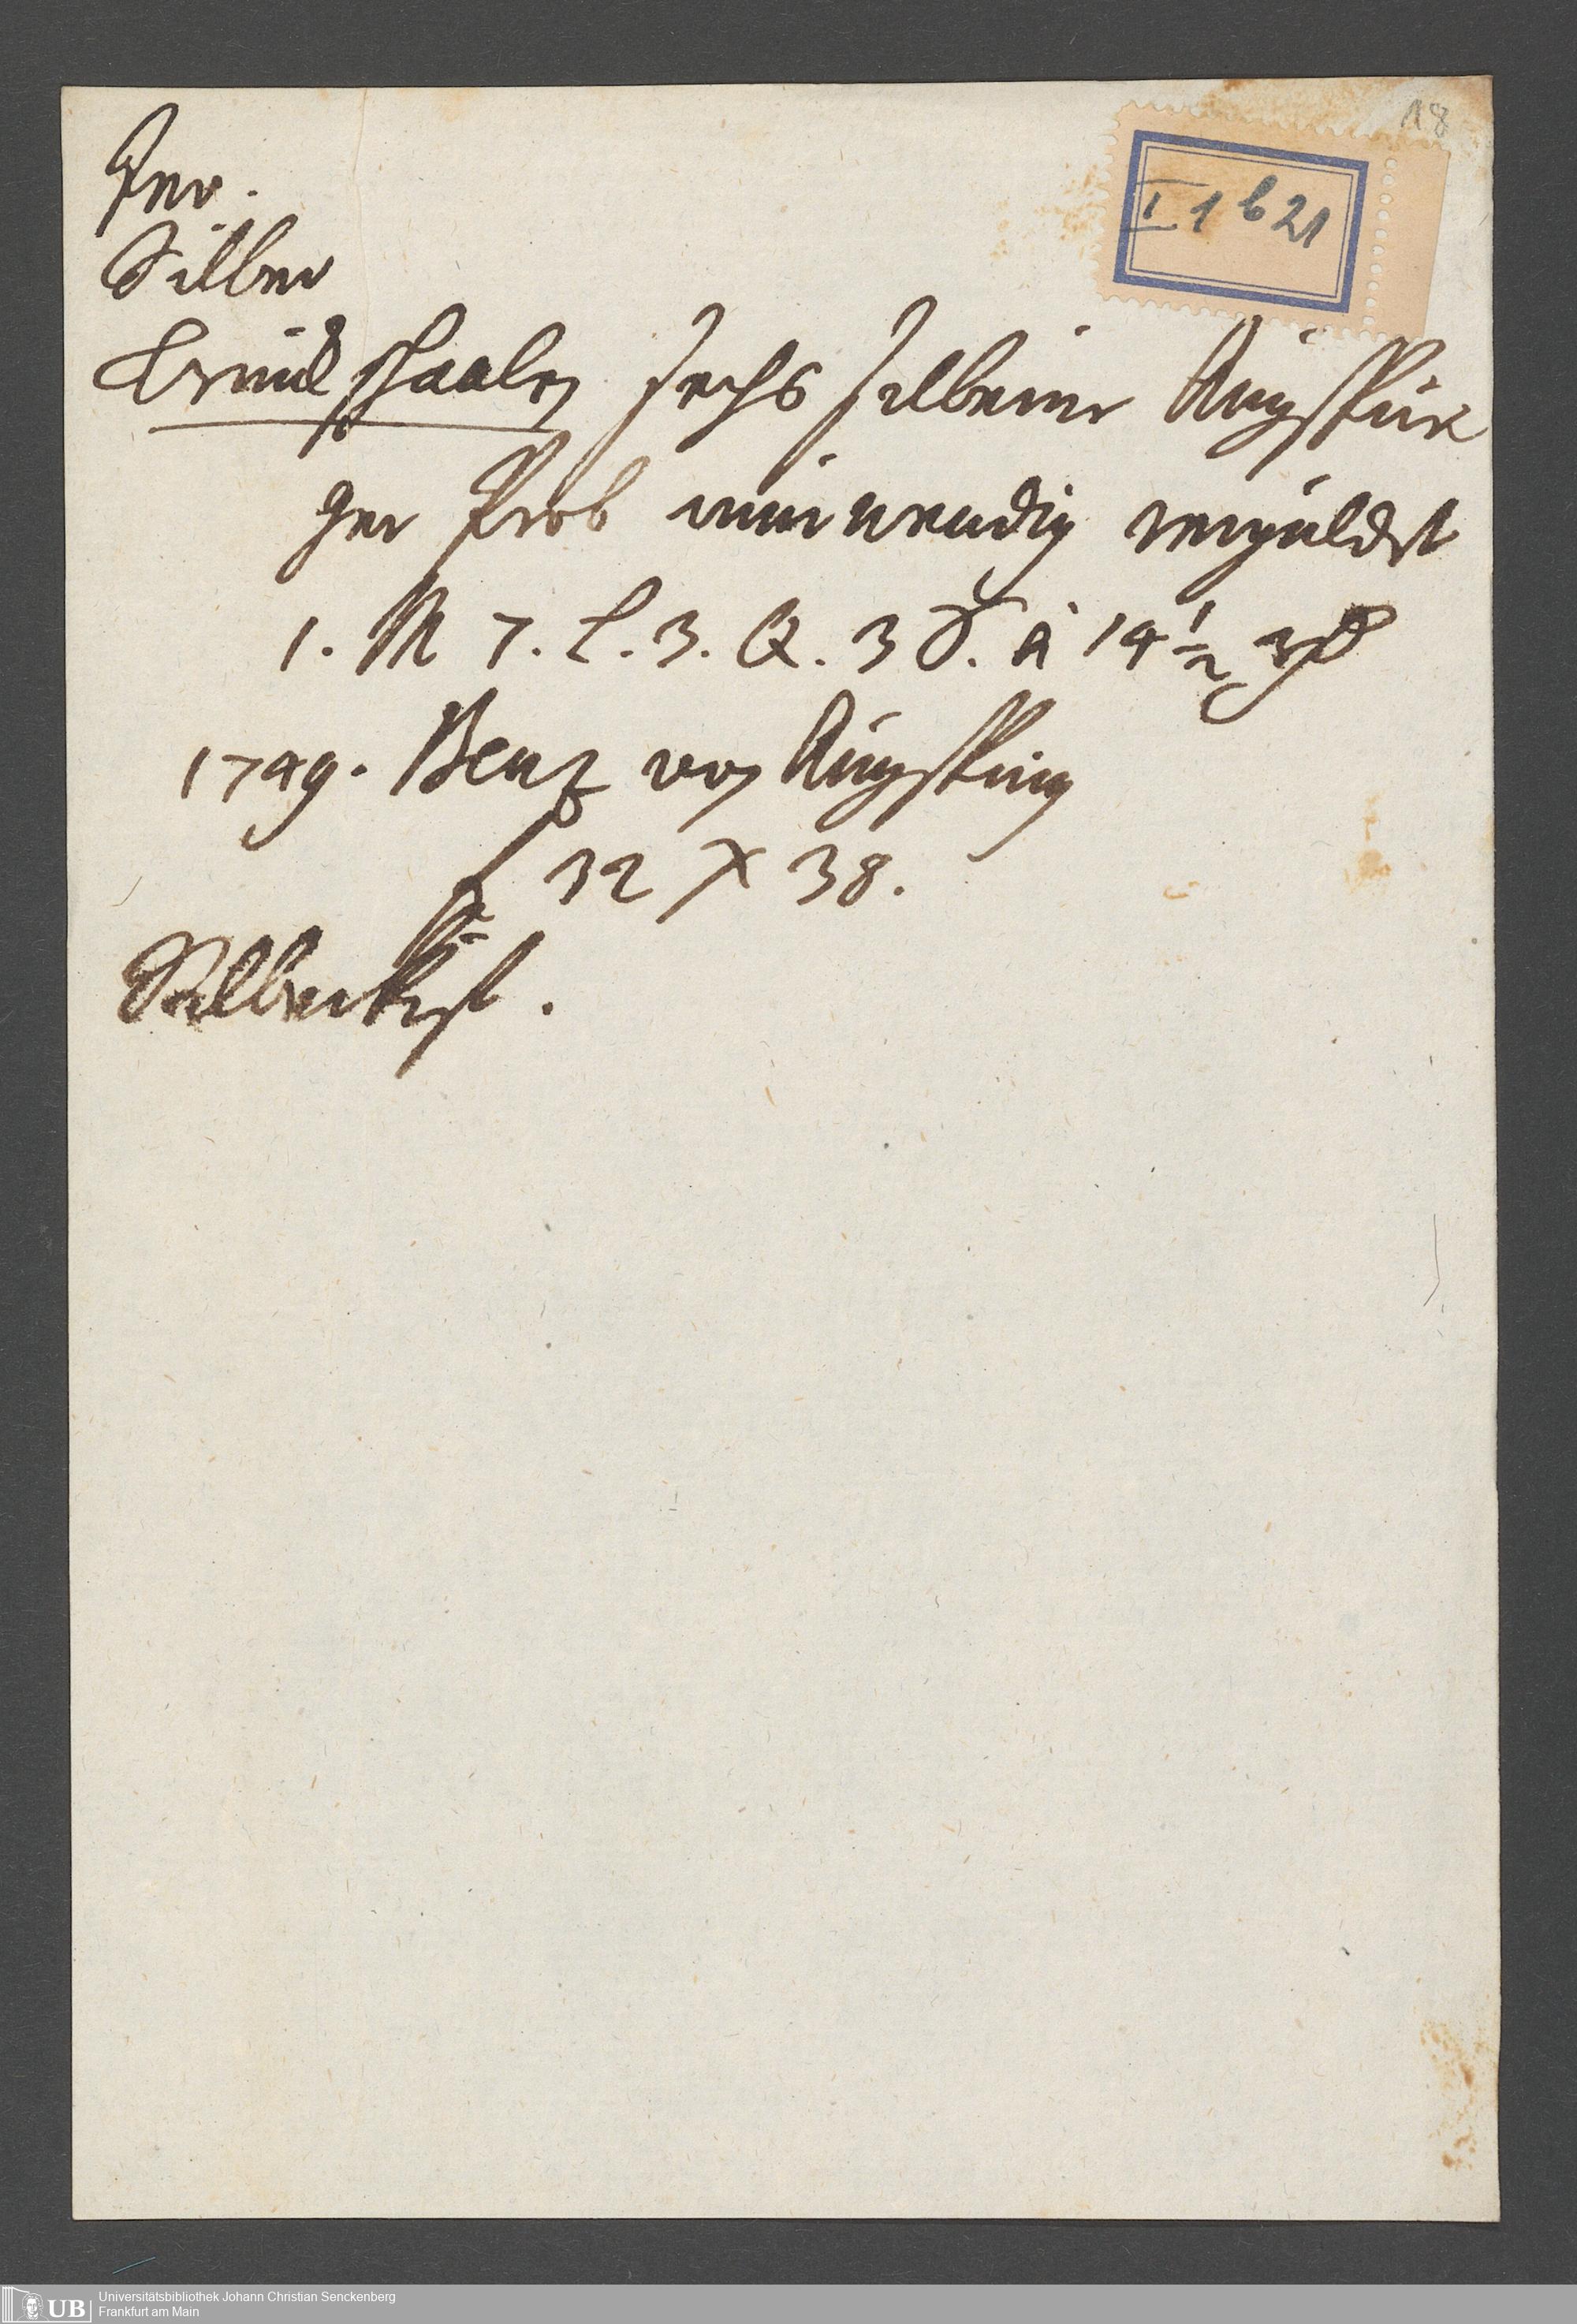 18
I 1 b 21
Inv.
Silber
Trinkschaalen sechs silberne Augspur
ger Prob innwendig vergüldet
1. M 7. L. 3. Q. 3 ₰. à 14 ½
1749. Benz von Augspurg
f 32 x 38.
Silberkist.
Universitätsbibliothek Johann Christian Senckenberg
Frankfurt am Main
UB